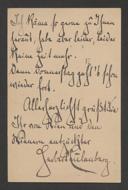 Ich käme so gerne zu Ihnen
hinaus, habe aber leider, leider
keine Zeit mehr.
Denn Donnerstag geht's schon
wieder fort.
Allerherzlichst grüßt Sie
Ihr von Wien und den
Wienern entzückter